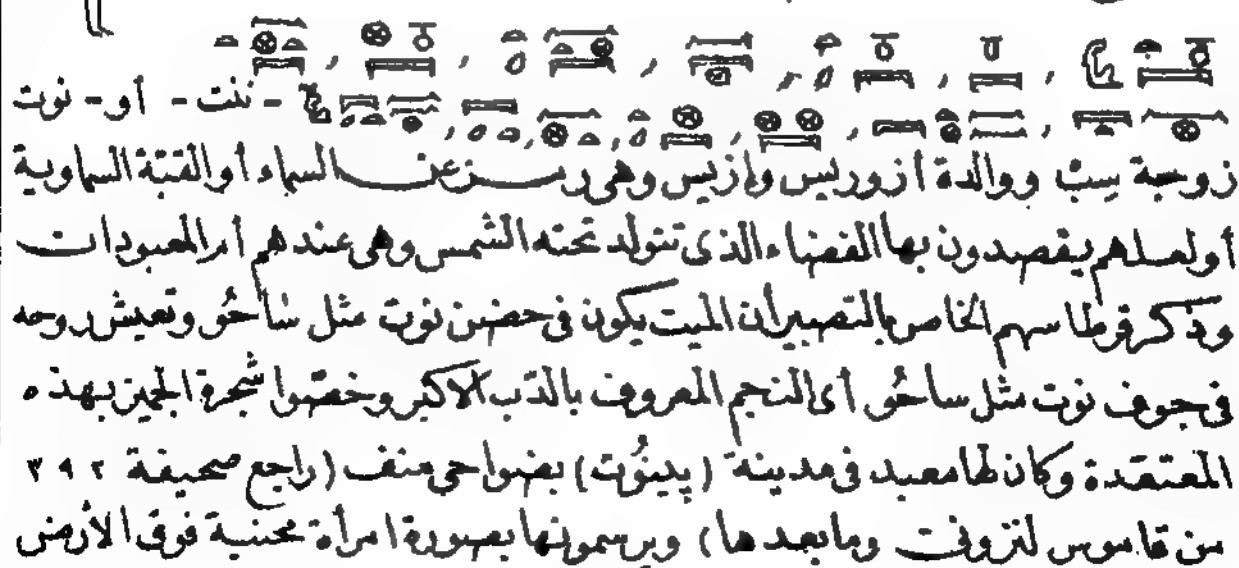 - ننت - أو - نوت
زوجة سِبْ ووالدة أزوريس وإزيس وهى رمز عن السماء أو القبّة السماوية
أولعلهم يقصدون بها الفضاء الذى تتولد تحته الشمس وهى عندهم أم المعبودات
وذكر قرطاسهم الخاص بالتصبير أن الميت يكون فى حضن نوت مثل سأحُو وتعيش روحه
فى جوف نوت مثل سأحُو أى النجم المعروف بالدّب الاكبر وخصّوا شجرة الجميز بهذه
المعتقدة وكان لها معبد فى مدينة (پينُوت) بضواحى منف (راجع صحيفة ٣٩٢
من قاموس لنزونى وما بعدها) ويرسمونها بصورة امرأة محنية فوق الأرض